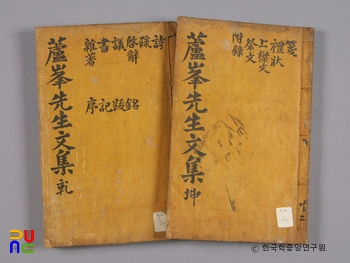 蘆峯先生文集 乾
詩
疏
啓辭
議
書
雜著
銘
跋
記
序
蘆峯先生文集 坤
箋
禮狀
上樑文
祭文
附錄
ⓒ 한국학중앙연구원